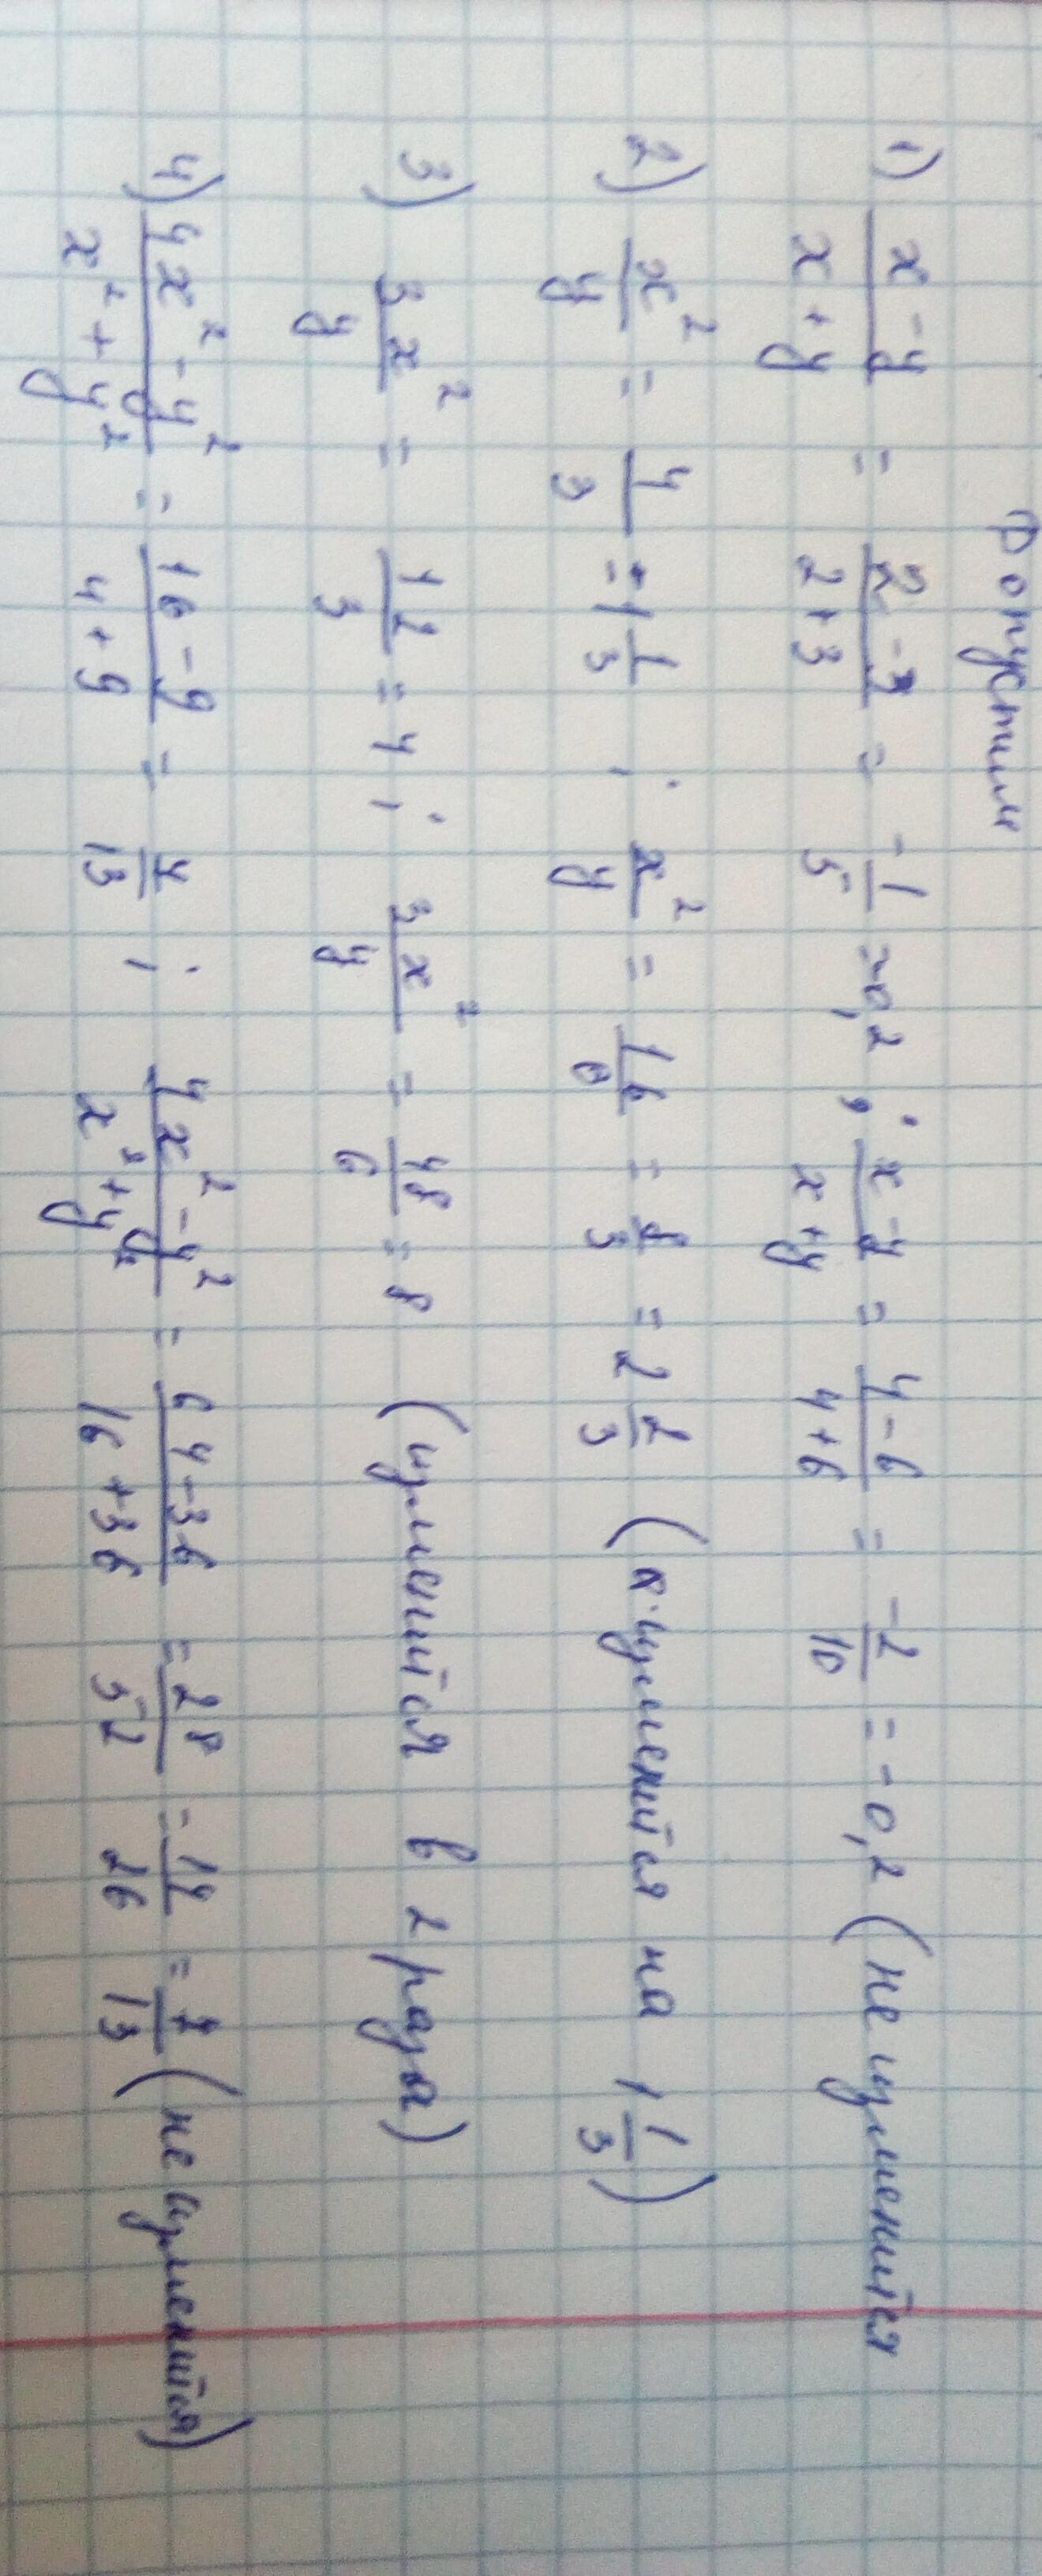 Допустим
1) x-y/x+y = 2-3/2+3 = -1/5 = -0,2 ; x-y/x+y = 4-6/4+6 = -2/10 = -0,2 (не изменится
2) x²/y = 4/3 = 1 1/3 ; x²/y = 16/6 = 8/3 = 2 2/3 (изменится на 1 1/3)
3) 3x²/y = 12/3 = 4 ; 3x²/y = 48/6 = 8 (изменится в 2 раза)
4) 4x²-y²/x²+y² = 16-9/4+9 = 7/13 ; 4x²-y²/x²+y² = 64-36/16+36 = 28/52 = 14/26 = 7/13 (не изменится)